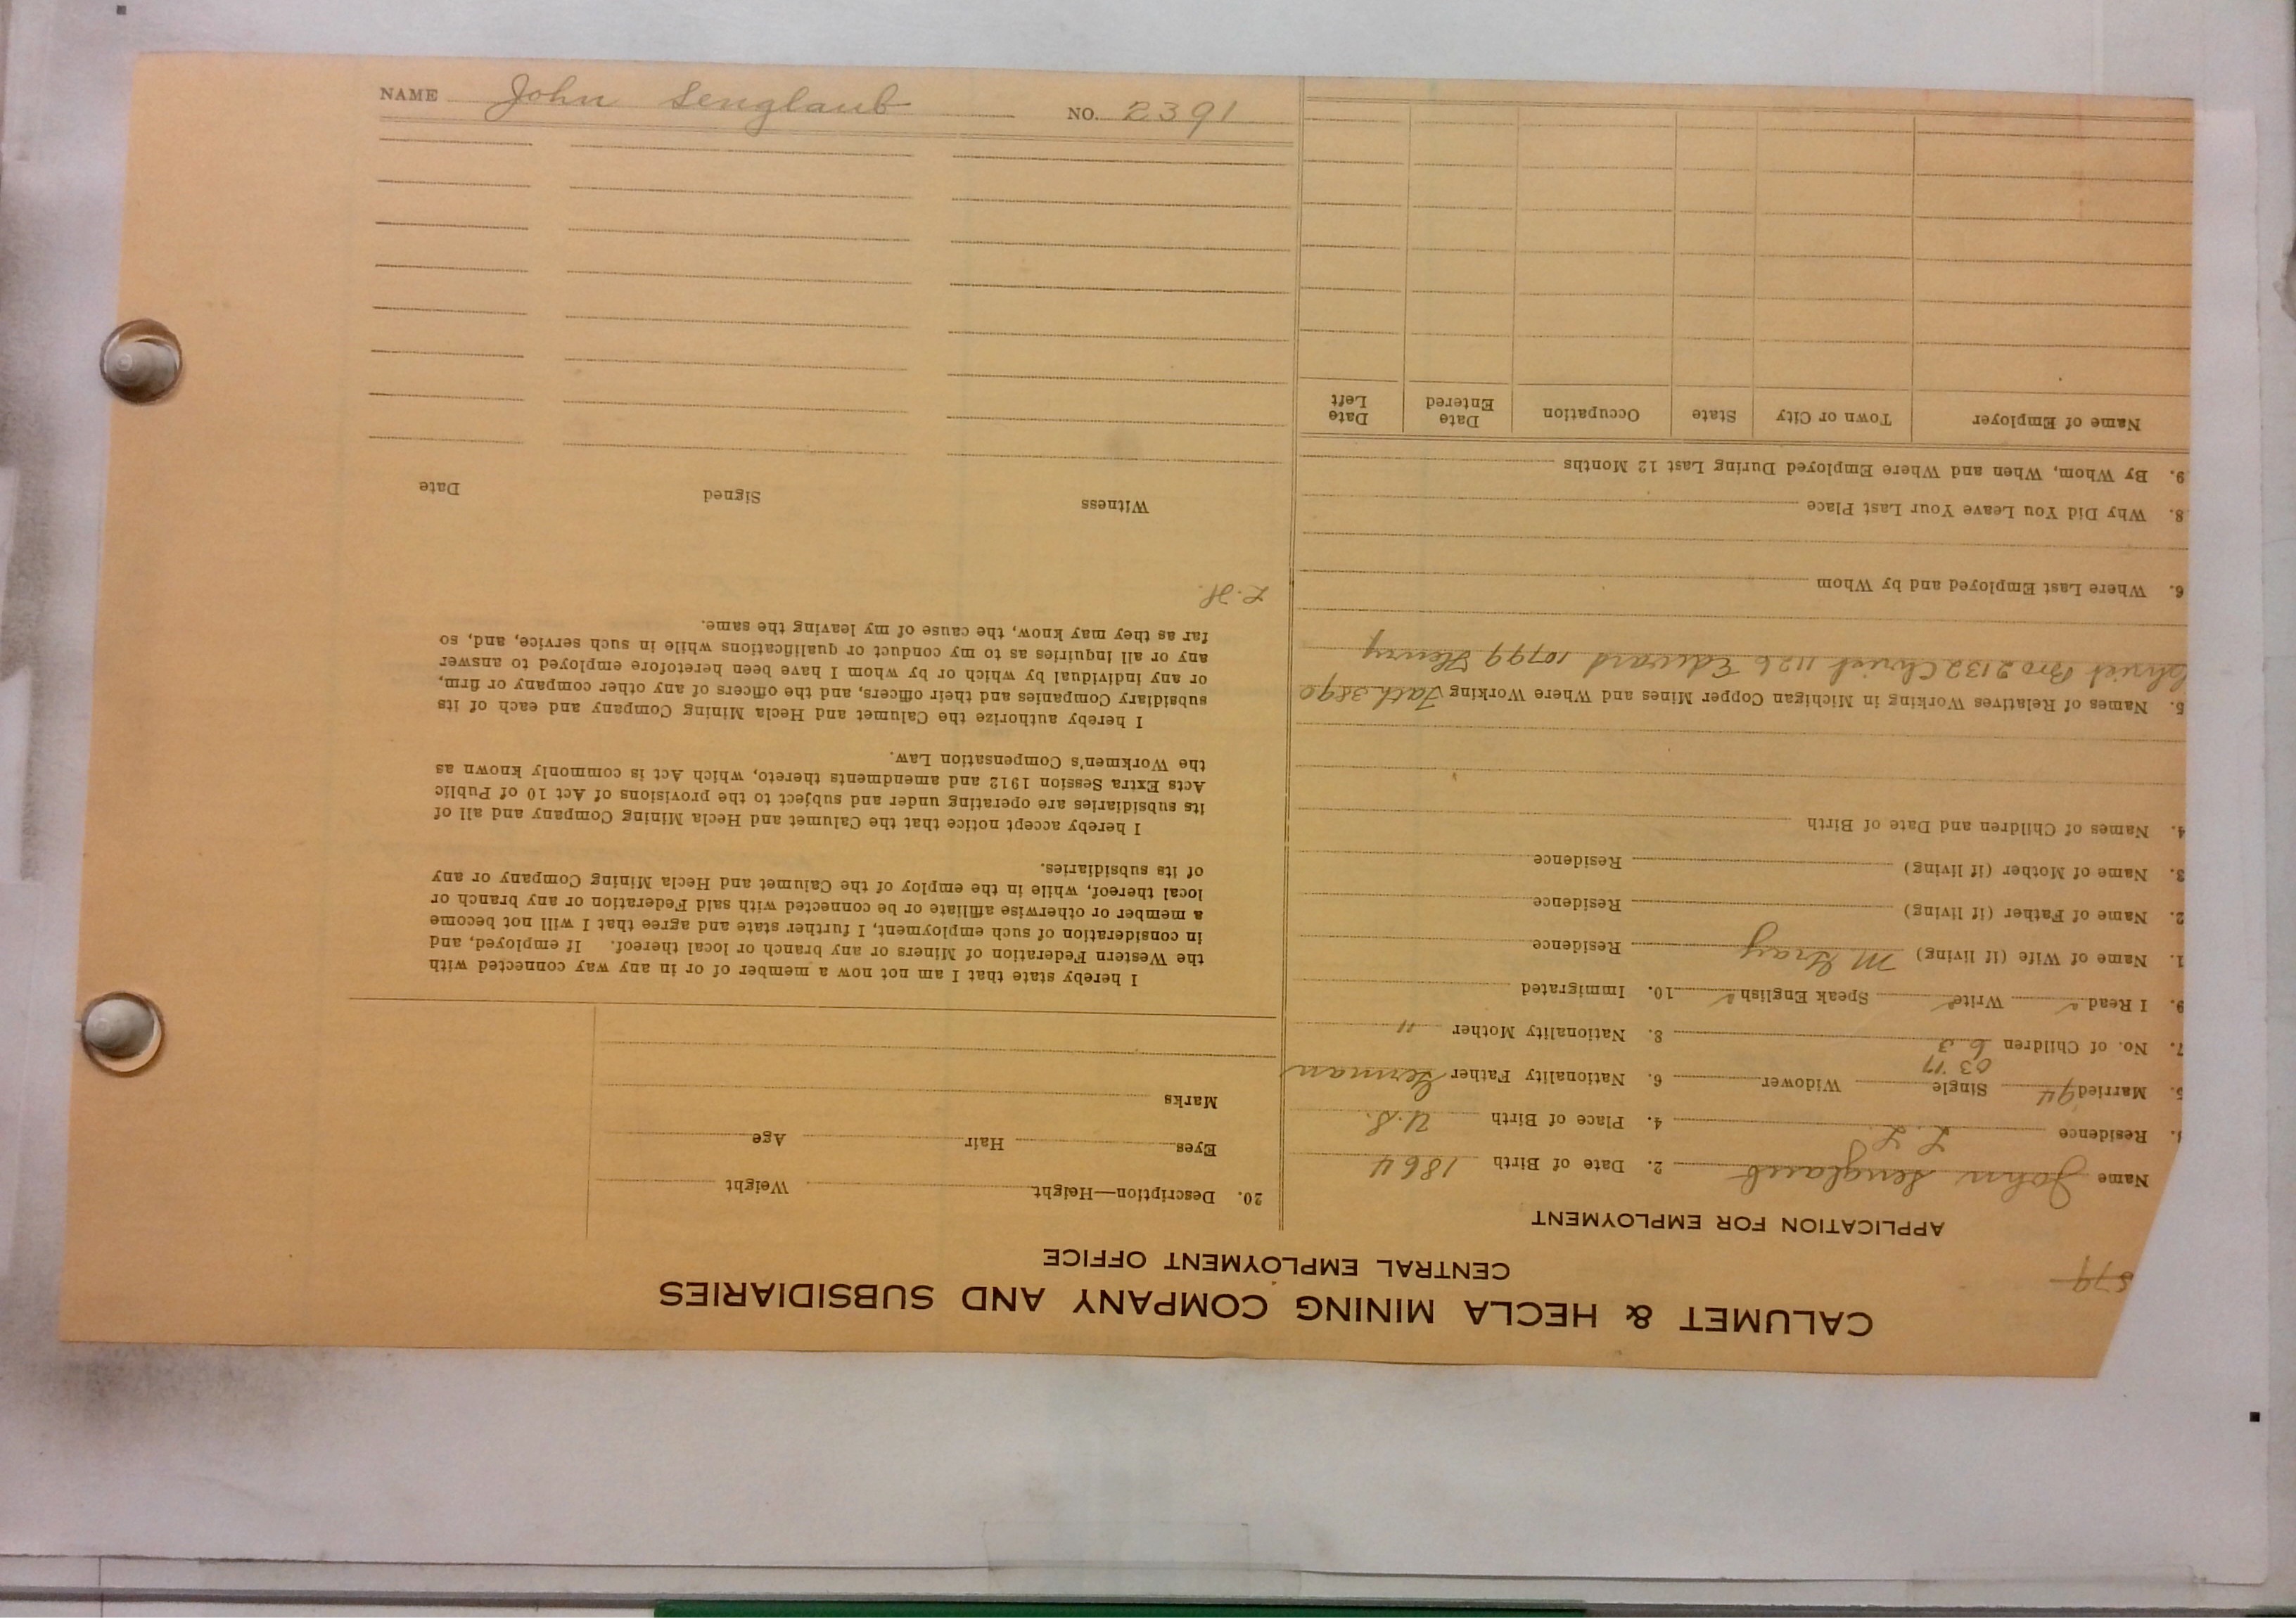 NAME John Senglaub NO. 2391
CALUMET & HECLA MINING COMPANY AND SUBSIDIARIES
CENTRAL EMPLOYMENT OFFICE
APPLICATION FOR EMPLOYMENT
Name John Senglaub 2. Date of Birth 1864
3. Residence L. L. 4. Place of Birth U.S.
5. Married 94 Single Widower 6. Nationality Father German
03 '17
7. No. of Children 6 3 8. Nationality Mother "
9. I Read Write Speak English 10. Immigrated
1. Name of Wife (if living) M Gray Residence
2. Name of Father (if living) Residence
3. Name of Mother (if living) Residence
4. Names of Children and Date of Birth
5. Names of Relatives Working in Michigan Copper Mines and Where Working Fath 3890
Christ Bro 2132 Christ 1126 Edward 10799 Henry
6. Where Last Employed and by Whom
8. Why Did You Leave Your Last Place
9. By Whom, When and Where Employed During Last 12 Months
Name of Employer Town or City State Occupation Date Entered Date Left
20. Description—Height Weight
Eyes Hair Age
Marks
I hereby state that I am not now a member of or in any way connected with
the Western Federation of Miners or any branch or local thereof. If employed, and
in consideration of such employment, I further state and agree that I will not become
a member or otherwise affiliate or be connected with said Federation or any branch or
local thereof, while in the employ of the Calumet and Hecla Mining Company or any
of its subsidiaries.
I hereby accept notice that the Calumet and Hecla Mining Company and all of
its subsidiaries are operating under and subject to the provisions of Act 10 of Public
Acts Extra Session 1912 and amendments thereto, which Act is commonly known as
the Workmen's Compensation Law.
I hereby authorize the Calumet and Hecla Mining Company and each of its
subsidiary Companies and their officers, and the officers of any other company or firm,
or any individual by which or by whom I have been heretofore employed to answer
any or all inquiries as to my conduct or qualifications while in such service, and, so
far as they may know, the cause of my leaving the same.
L.H.
Witness Signed Date